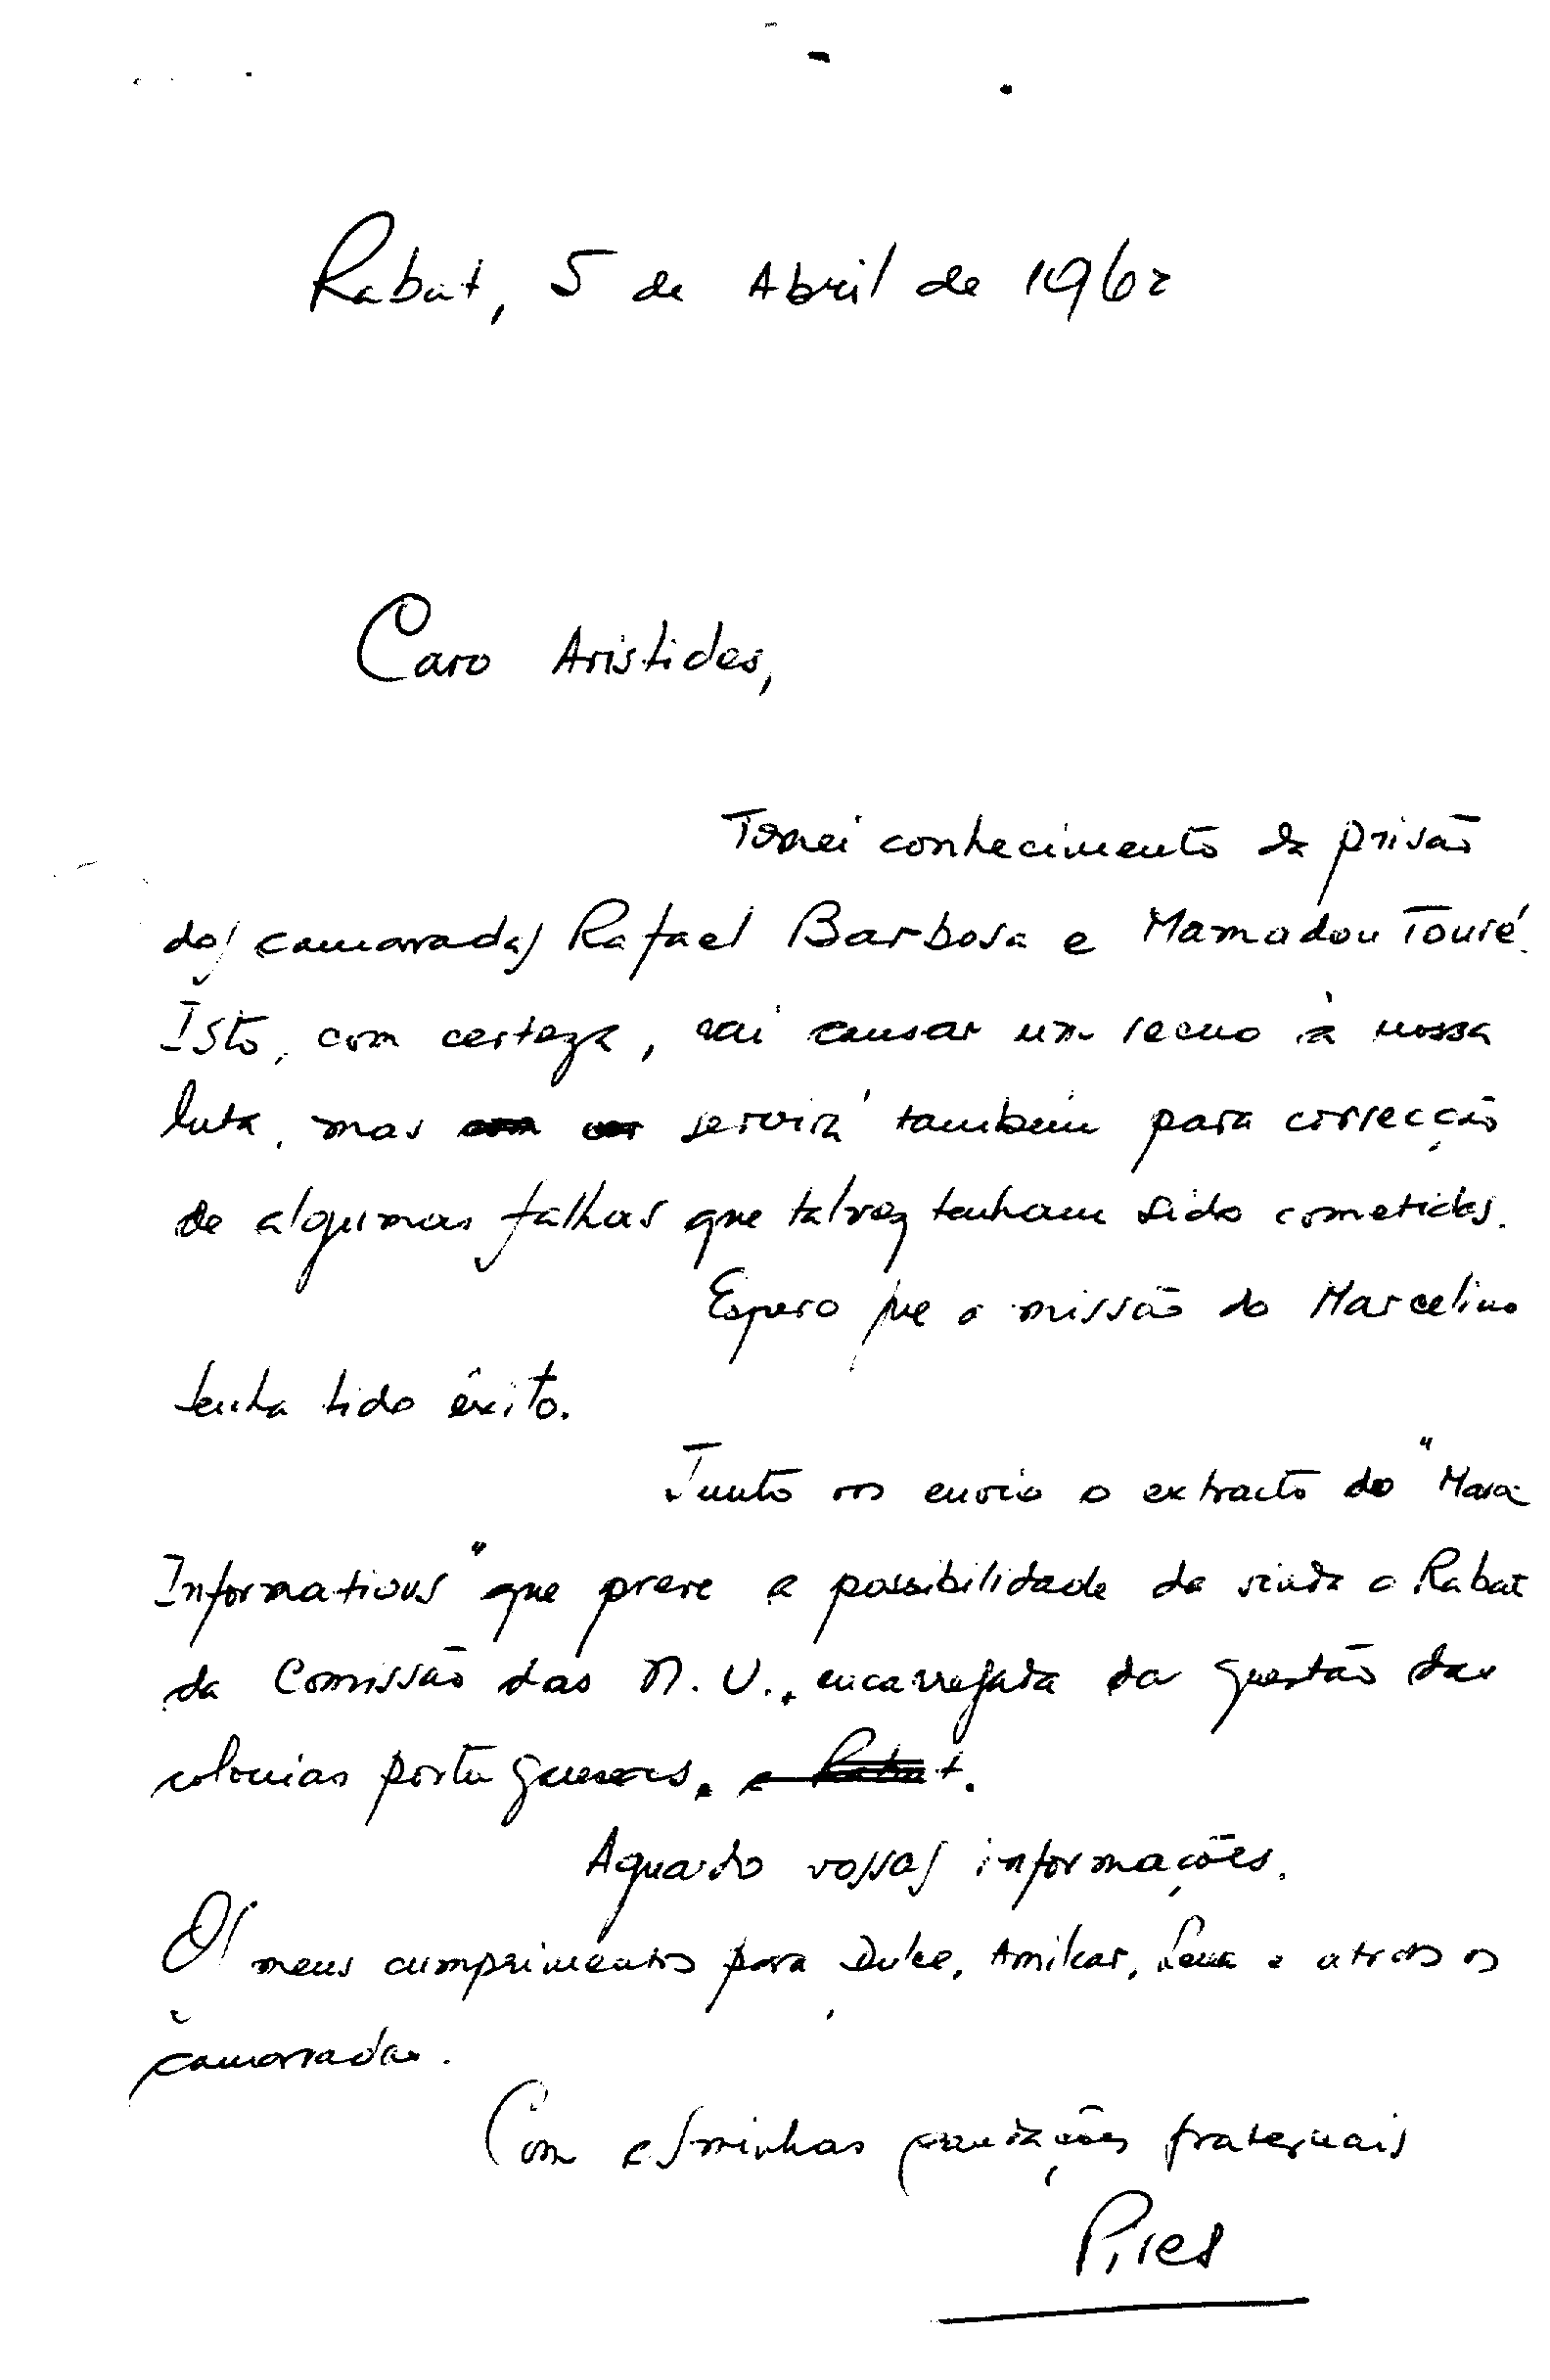 Rabat, 5 de Abril de 1962
Caro Aristides,
Tomei conhecimento da prisão
dos camaradas Rafael Barbosa e Mamadou Touré.
Isto, com certeza, vai causar um recuo à nossa
luta, mas servirá também para correcção
de algumas falhas que talvez tenham sido cometidas.
Espero que a missão do Marcelino
tenha tido êxito.
Junto vos envio o extracto do "Maroc
Informations" que preve a possibilidade da vinda a Rabat
da Comissão das N. U., encarregada da questão das
colonias portuguesas.
Aguardo vossas informações.
Os meus cumprimentos para Dulce, Amilcar, e os
camaradas.
Com as minhas saudações fraternais
Pires